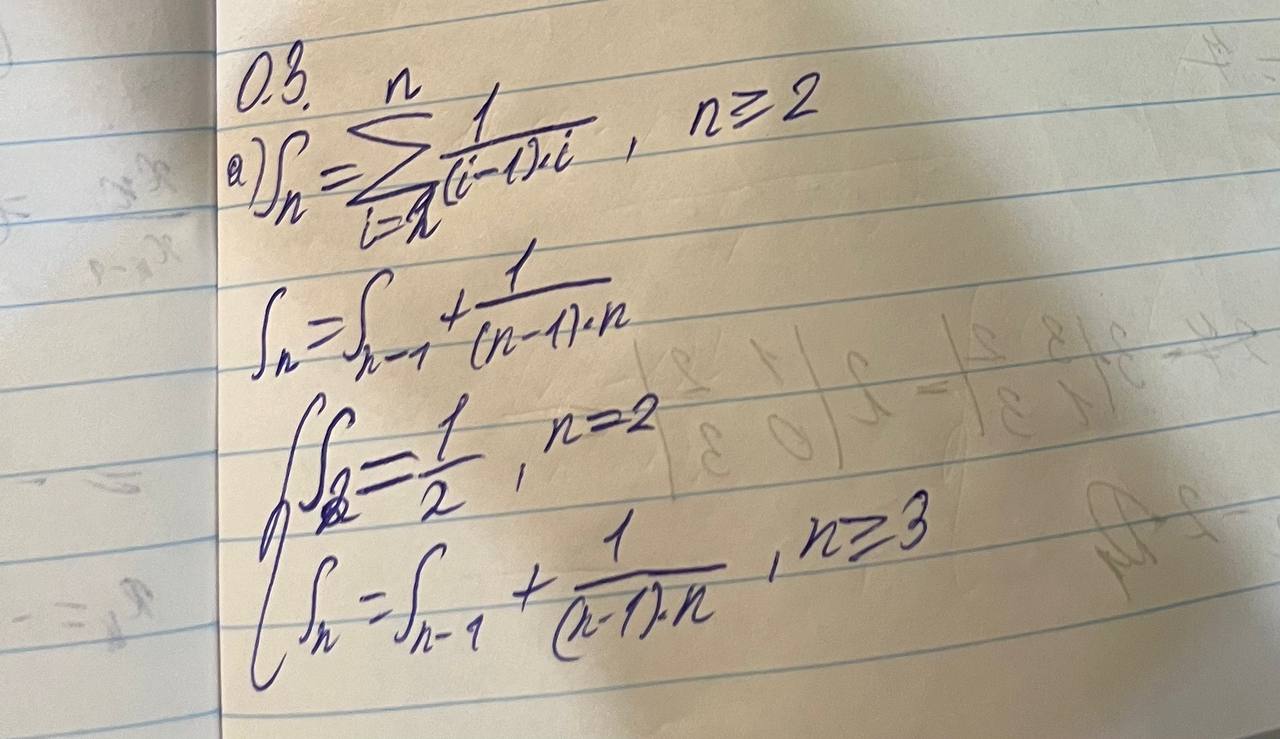 0.3.
а) Sₙ = ∑ⁿᵢ₌₂ 1/((i-1)·i), n ≥ 2
Sₙ = Sₙ₋₁ + 1/((n-1)·n)
{ S₂ = 1/2, n = 2
Sₙ = Sₙ₋₁ + 1/((n-1)·n), n ≥ 3